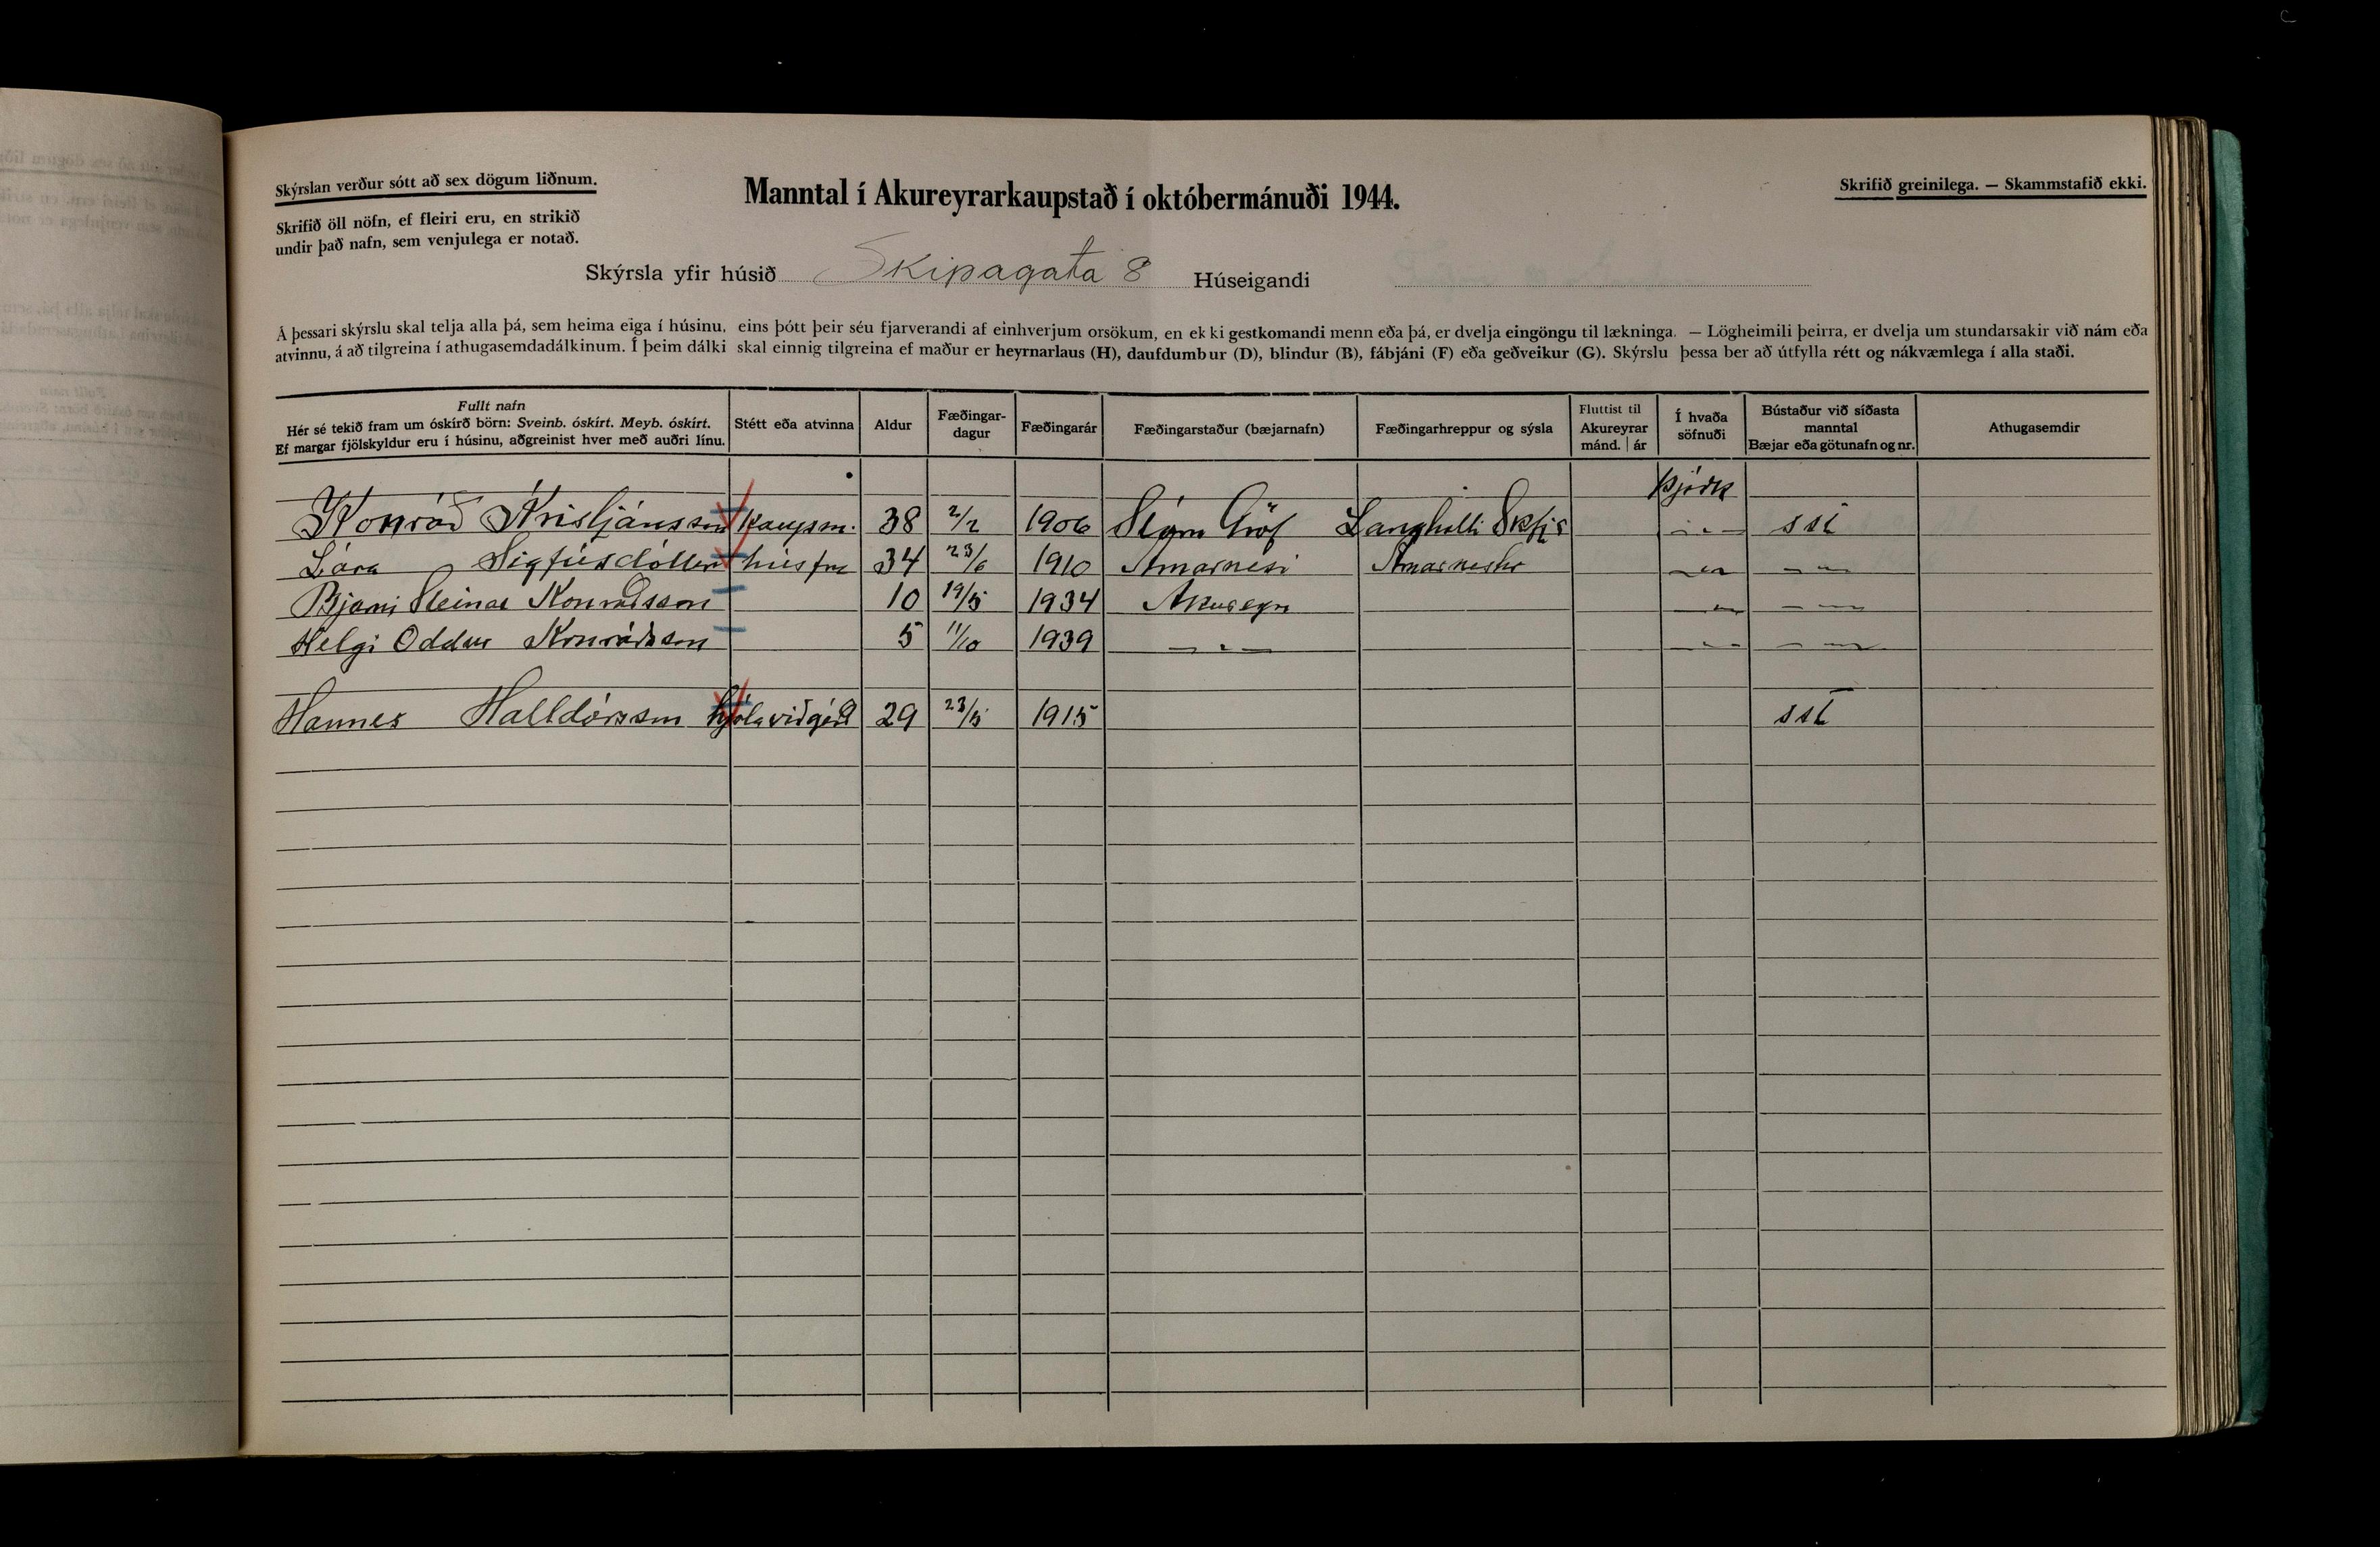 Skýrslan verður sótt að sex dögum liðnum.
Manntal í Akureyrarkaupstað í októbermánuði 1944.
Skrifið greinilega. — Skammstafið ekki.
Skrifið öll nöfn, ef fleiri eru, en strikið
undir það nafn, sem venjulega er notað.
Skýrsla yfir húsið Skipagata 8 Húseigandi
Á þessari skýrslu skal telja alla þá, sem heima eiga í húsinu, eins þótt þeir séu fjarverandi af einhverjum orsökum, en ekki gestkomandi menn eða þá, er dvelja eingöngu til lækninga. — Lögheimili þeirra, er dvelja um stundarsakir við nám eða
atvinnu, á að tilgreina í athugasemdadálkinum. Í þeim dálki skal einnig tilgreina ef maður er heyrnarlaus (H), daufdumbur (D), blindur (B), fábjáni (F) eða geðveikur (G). Skýrslu þessa ber að útfylla rétt og nákvæmlega í alla staði.
Fullt nafn
Hér sé tekið fram um óskírð börn: Sveinb. óskírt. Meyb. óskírt.
Ef margar fjölskyldur eru í húsinu, aðgreinist hver með auðri línu.
Stétt eða atvinna
Aldur
Fæðingar-
dagur
Fæðingarár
Fæðingarstaður (bæjarnafn)
Fæðingarhreppur og sýsla
Fluttist til
Akureyrar
mánd. | ár
Í hvaða
söfnuði
Bústaður við síðasta
manntal
Bæjar eða götunafn og nr.
Athugasemdir
Þjóðk
Konráð Kristjánsson Kaupm. 38 2/2 1906 Gröf Langholti Skfjs -"- sst
Lára Sigfúsdóttir húsfrú 34 23/6 1910 Arnarnesi Arnarneshr -"- -"-
Bjarni Steinar Konráðsson 10 19/5 1934 Akureyri -"- -"-
Helgi Oddur Konráðsson 5 11/10 1939 -"- -"- -"-
Hannes Halldórsson hjólaviðgérð 29 23/5 1915 sst